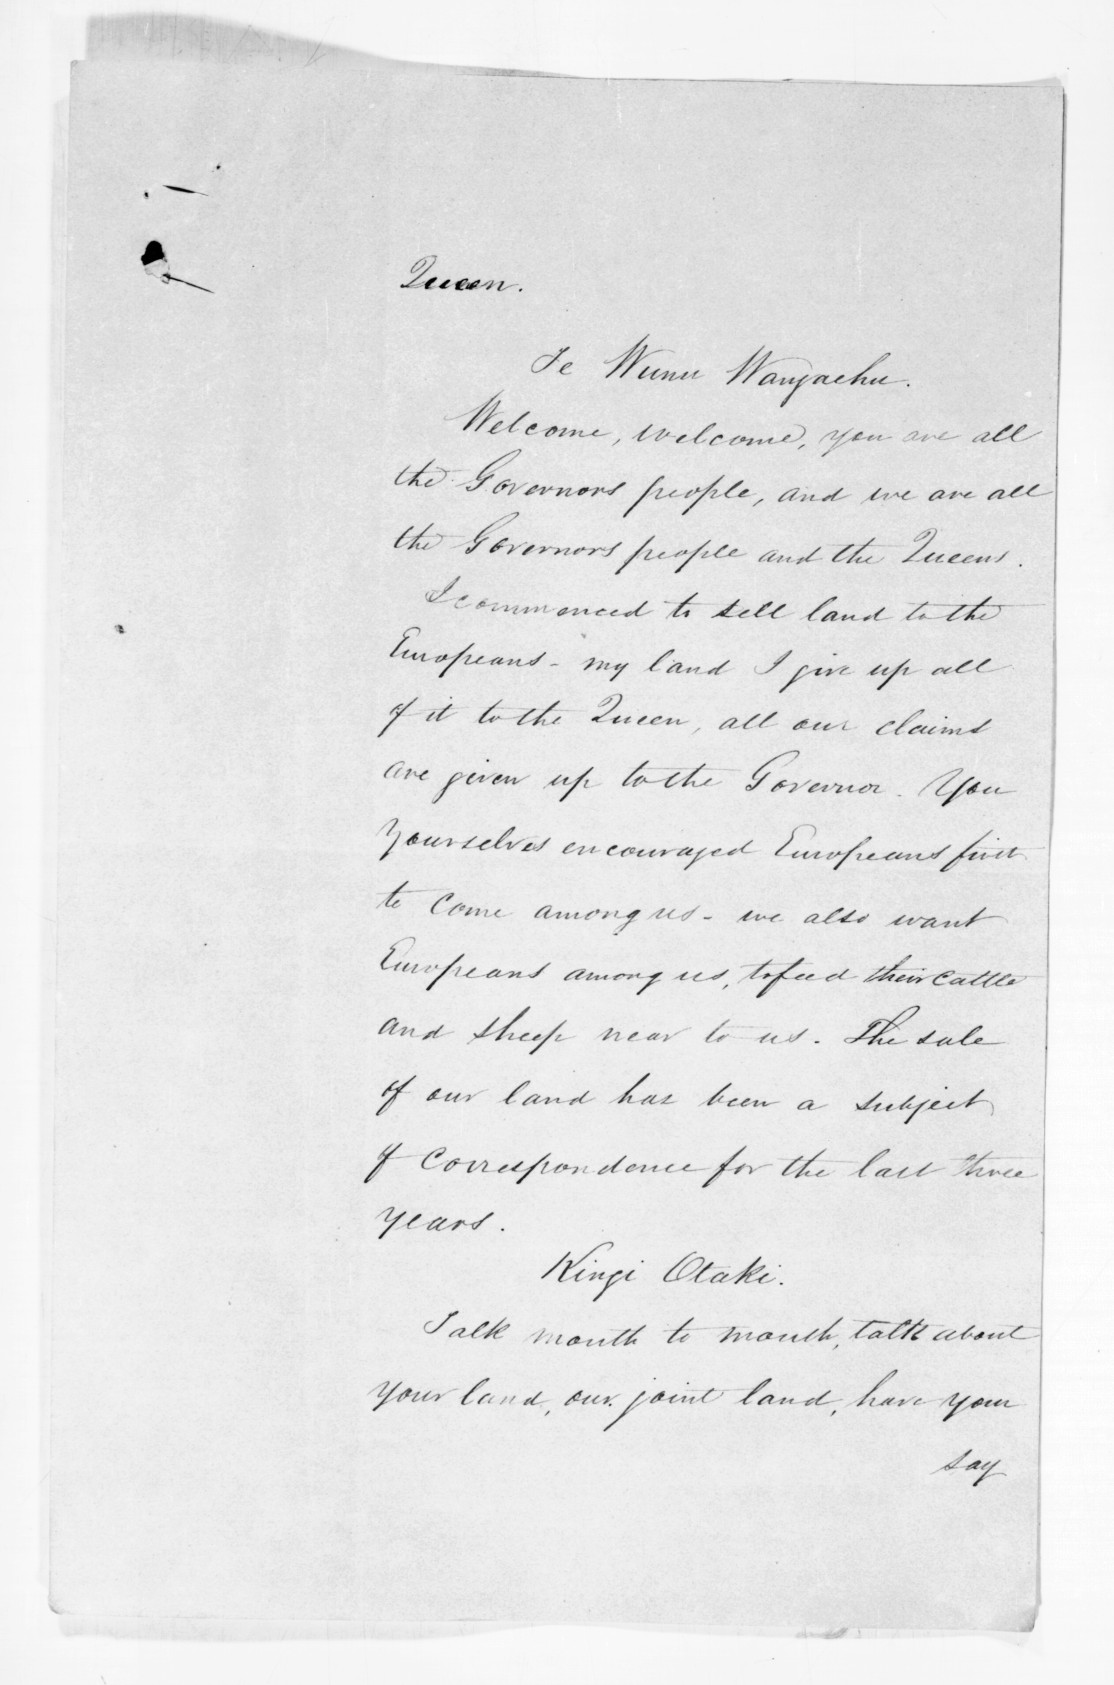 Queen.
Te Wunu Wangaehu.
Welcome, welcome, you are all
the Governors people, and we are all
the Governors people and the Queens.
I commenced to sell land to the
Europeans - my land I give up all
of it to the Queen, all our claims
are given up to the Governor. You
yourselves encouraged Europeans first
to come among us - we also want
Europeans among us, to feed their cattle
and sheep near to us. The sale
of our land has been a subject
of correspondence for the last three
years.
Kingi Otaki.
Talk mouth to mouth, talk about
your land, our joint land, have your
say